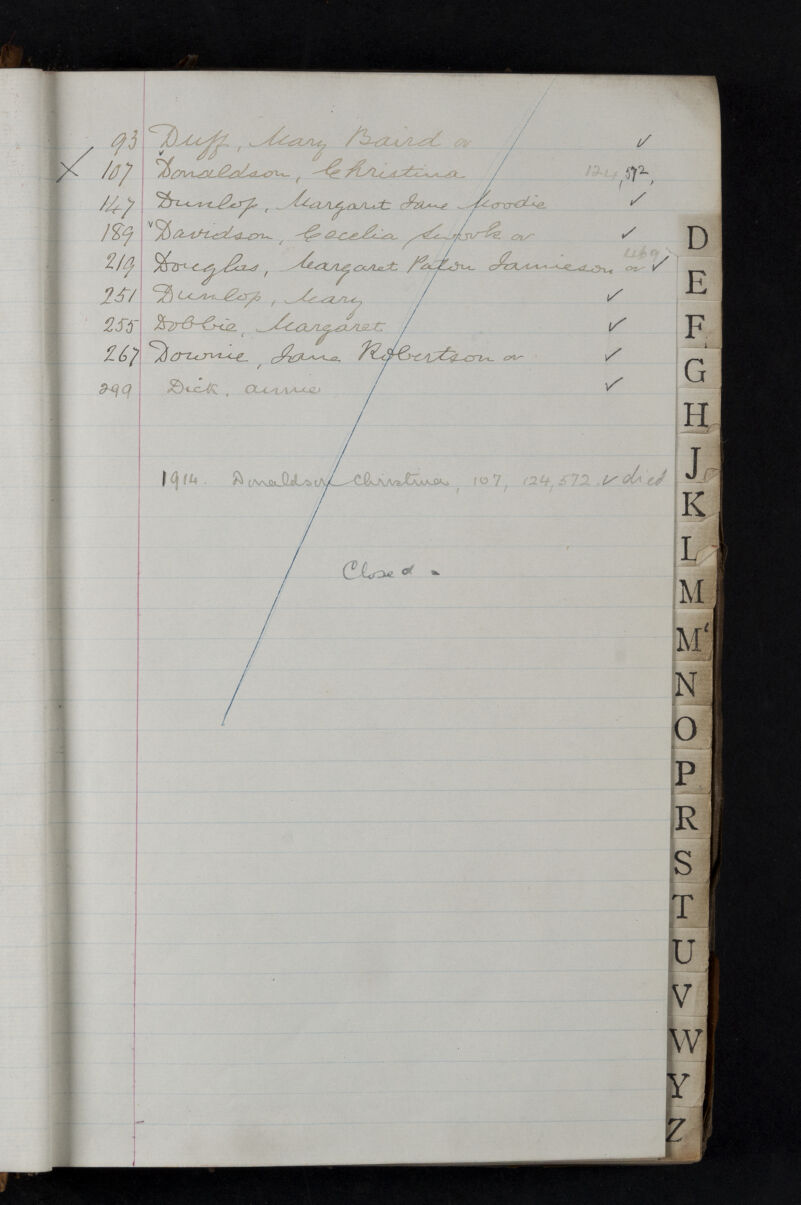 93 Duff, Mary Baird or ✓
X 107 Donaldson, Christina 124,572,
147 Dunlop, Margaret Jane Moodie ✓
189 Davidson, Cecelia or ✓
219 Douglas, Margaret Paton Jamieson or ✓
469
251 Dunlop, Mary ✓
255 Dobbie, Margaret ✓
267 Downie, Jane Robertson or ✓
299 Dick, Annie ✓
1914. Donaldson Christina, 107, 124,572 ✓ died
Closed
D
E
F
G
H
J
K
L
M
Mᶜ
N
O
P
R
S
T
U
V
W
Y
Z